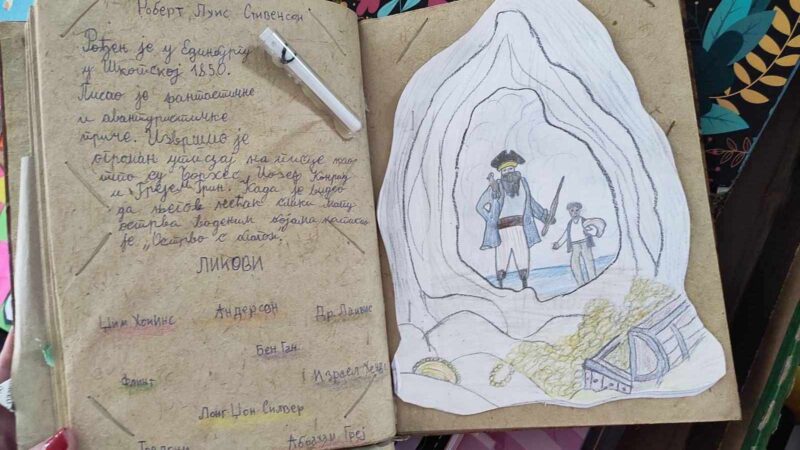 Роберт Луис Стивенсон
Рођен је у Единбургу
у Шкотској 1850.
Писао је фантастичне
и авантуристичке
приче. Извршио је
огроман утисај на писце као
што су Борхес, Јозеф Конрад
и Грејем Грин. Када је видео
да његов нећак слика мапу
острва воденим бојама настало
је „Острво с благом".
ЛИКОВИ
Џим Хокинс Андерсон Др. Ливси
Бен Ган
Флинт Израел Хендс
Лонг Џон Силвер
Абрахам Греј